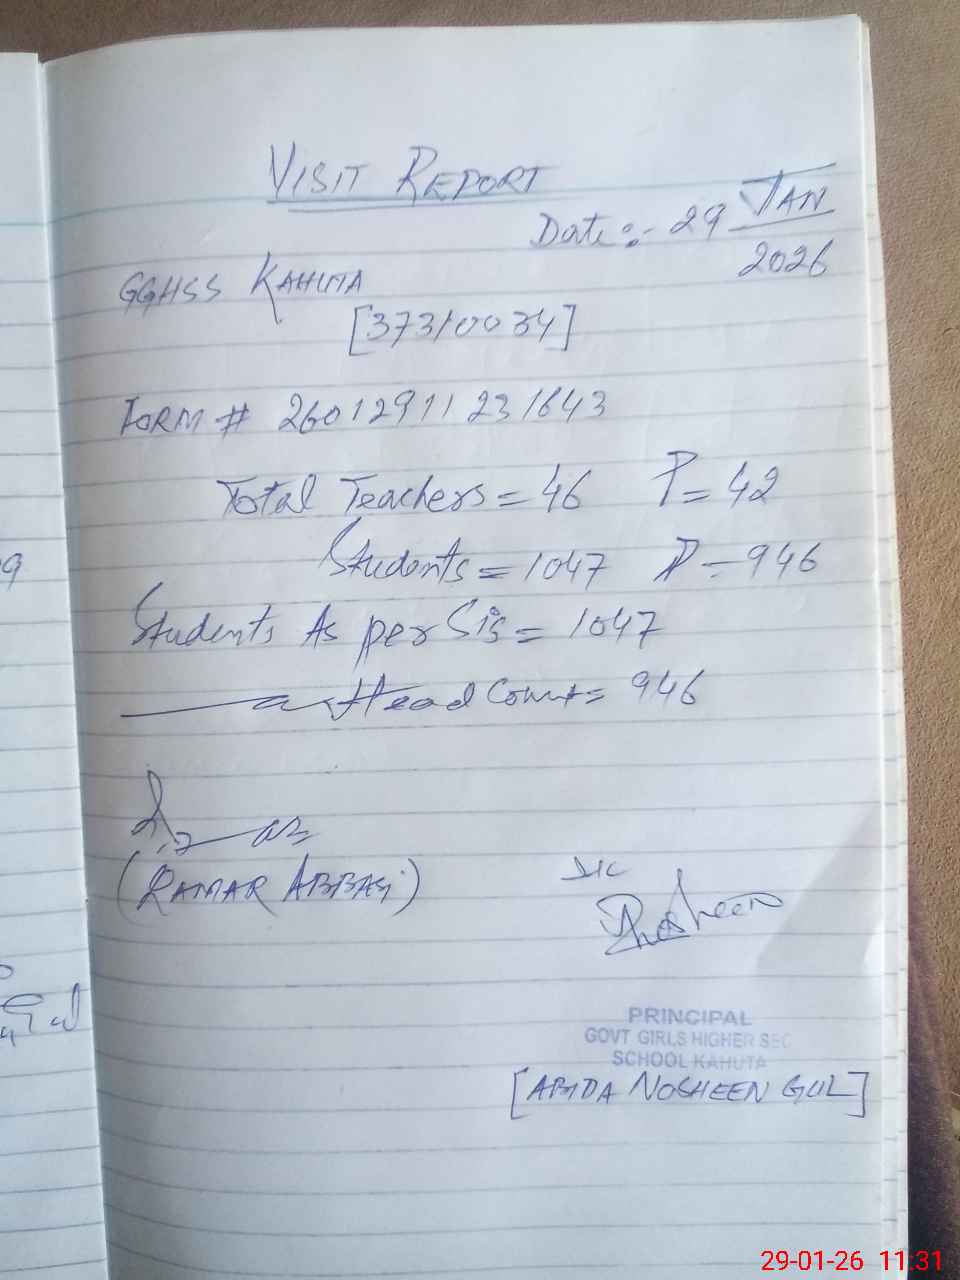 VISIT REPORT
Date:- 29 JAN
2026
GGHSS KAHUTA
[37310034]
FORM # 26012911231643
Total Teachers = 46 P = 42
Students = 1047 P = 946
Students As per Sis = 1047
Head Count = 946
(QAMAR ABBASi)
I/C
Nosheen
PRINCIPAL
GOVT GIRLS HIGHER SEC
SCHOOL KAHUTA
[ABIDA NOSHEEN GUL]
29-01-26 11:31